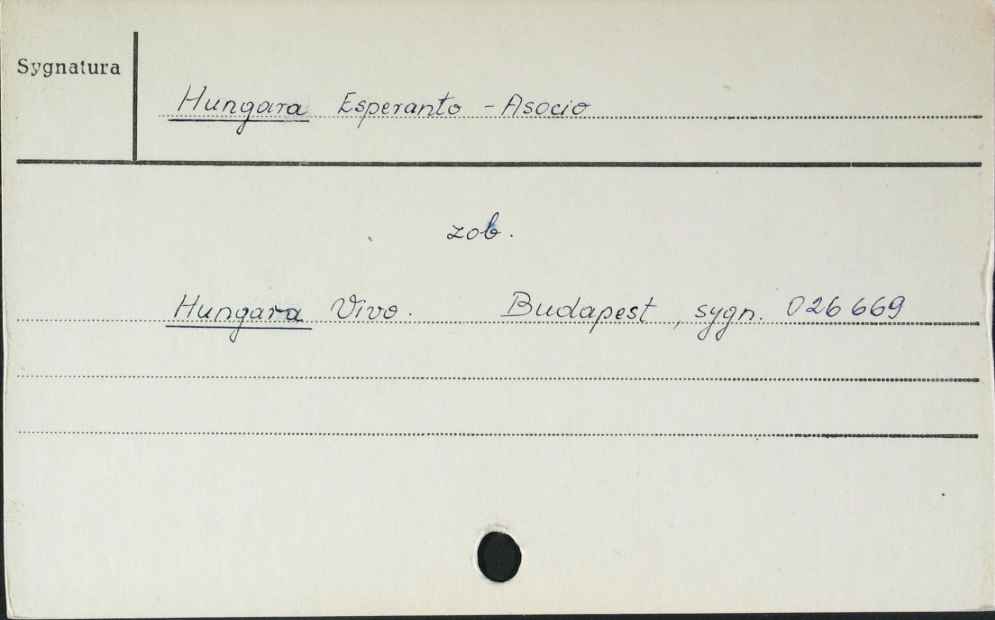 Sygnatura
Hungara Esperanto - Asocio
zob.
Hungara Vivo. Budapest, sygn. 026669